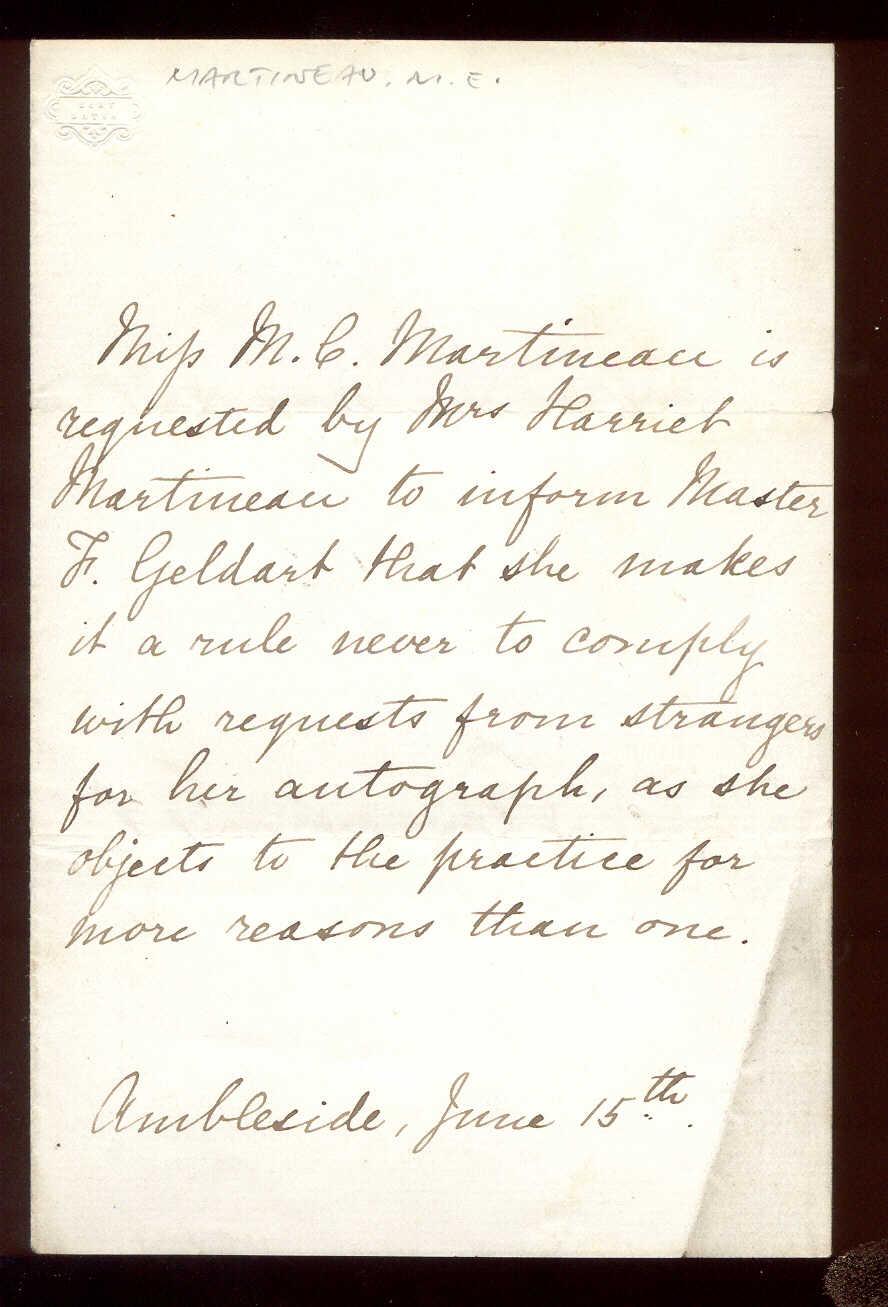 MARTINEAU. M. E.
Miss M. C. Martineau is
requested by Mrs Harriet
Martineau to inform Master
F. Geldart that she makes
it a rule never to comply
with requests from strangers
for her autograph, as she
objects to the practice for
more reasons than one.
Ambleside, June 15th.